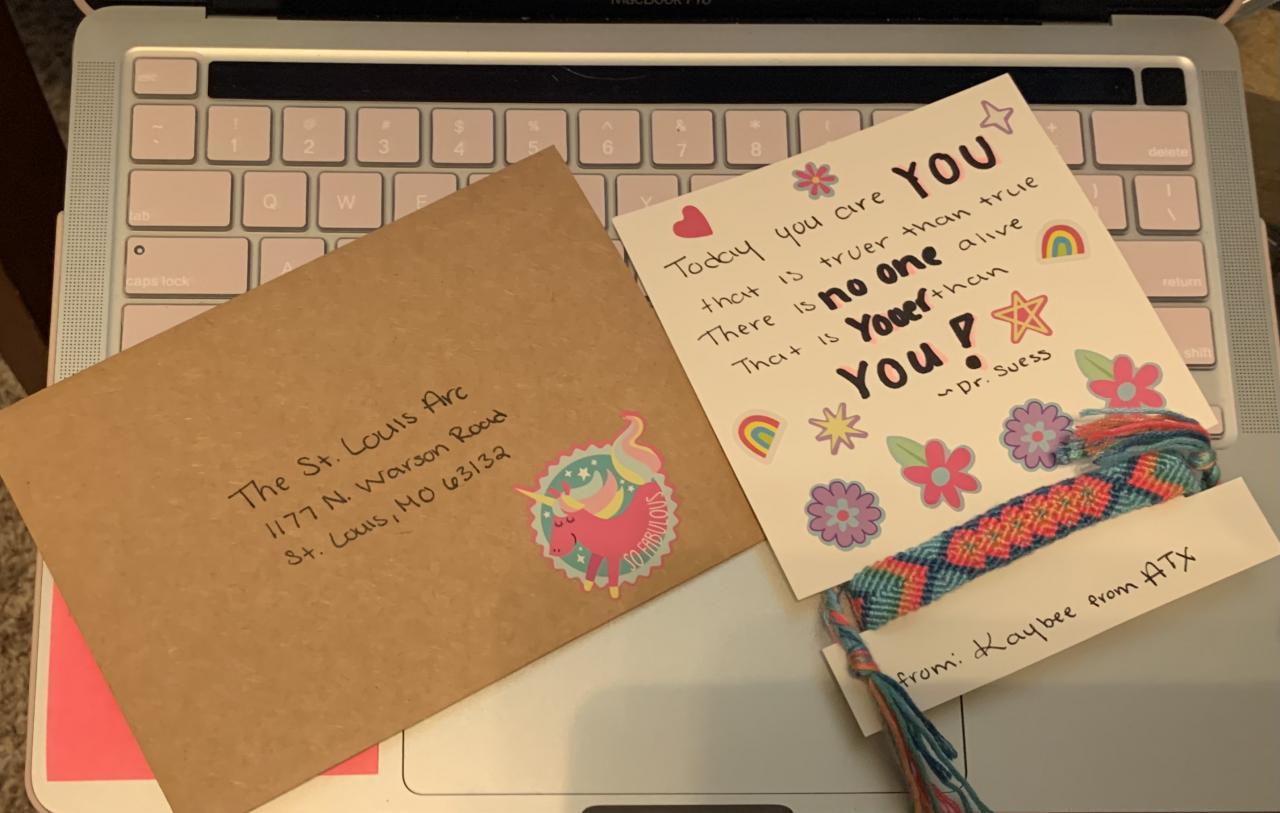 MacBook Pro
esc
~ ! @ # $ % ^ & * ( +
` 1 2 3 4 5 6 7 8 delete
tab Q W E Y
caps lock A return
shift
The St. Louis Arc
1177 N. Warson Road
St. Louis, MO 63132
SO FABULOUS
Today you are YOU
that is truer than true
There is no one alive
That is Youer than
YOU!
~Dr. Suess
from: Kaybee from ATX